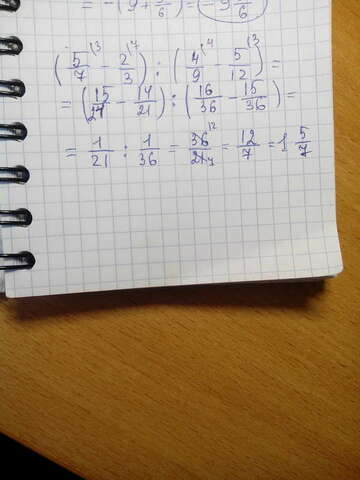 = -(9 + /6) = -9 /6
(5/7 ⁽³ - 2/3 ⁽⁷) : (4/9 ⁽⁴ - 5/12 ⁽³) =
= (15/21 - 14/21) : (16/36 - 15/36) =
= 1/21 : 1/36 = 36 ¹²/21 ₇ = 12/7 = 1 5/7